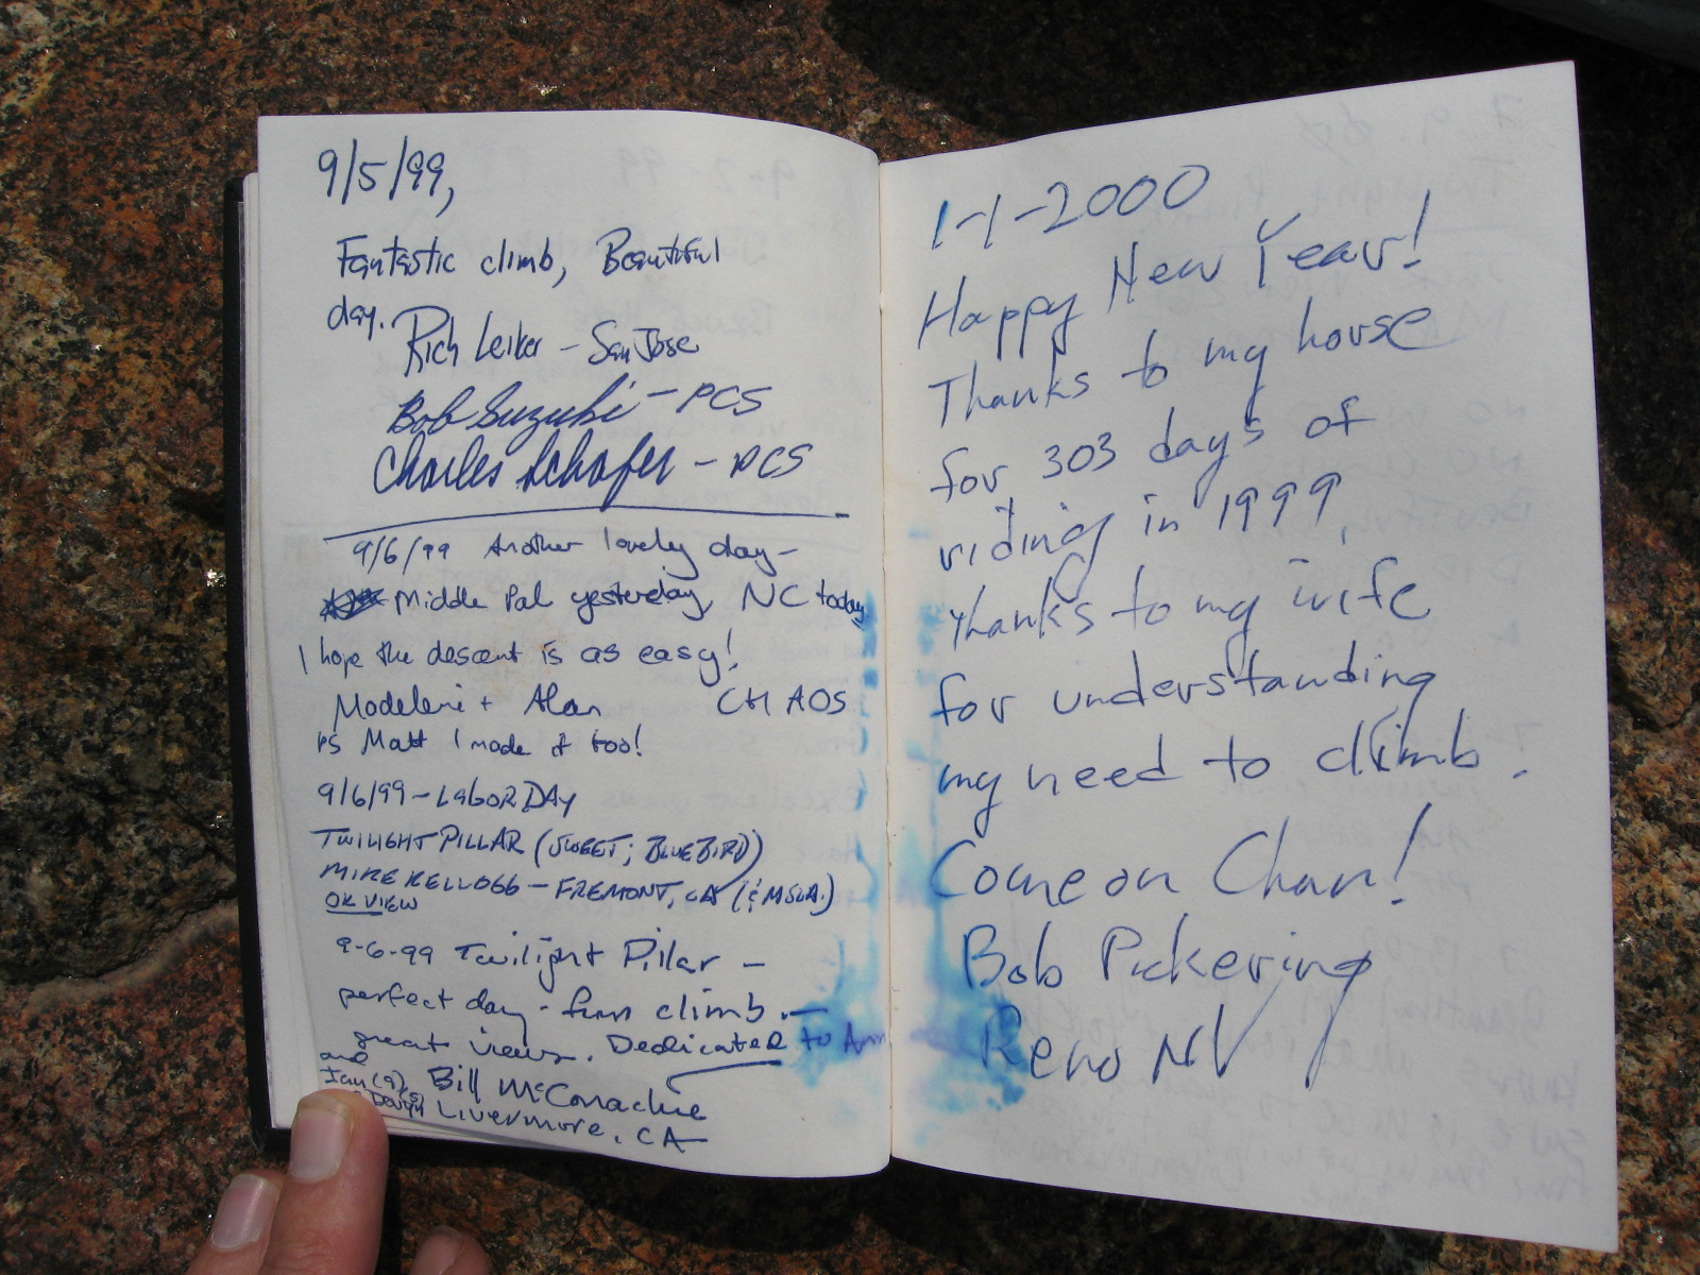 9/5/99,
Fantastic climb, Beautiful
day.
Rich Leiker - San Jose
Bob Suzuki - PCS
Charles Schafer - PCS
9/6/99 Another lovely day -
Middle Pal yesterday, NC today
I hope the descent is as easy!
Madeleine + Alan CHAOS
PS Matt I made it too!
9/6/99 - LABOR DAY
TWILIGHT PILLAR (SWEET; BLUEBIRD)
MIKE KELLOGG - FREMONT, CA (& MSLA.)
OK VIEW
9-6-99 Twilight Pillar -
perfect day - fun climb.
great views. Dedicated to Ann
and
Ian (9), Bill McConachie
Livermore, CA
1-1-2000
Happy New Year!
Thanks to my house
for 303 days of
riding in 1999,
thanks to my wife
for understanding
my need to climb.
Come on Chan!
Bob Pickering
Reno NV